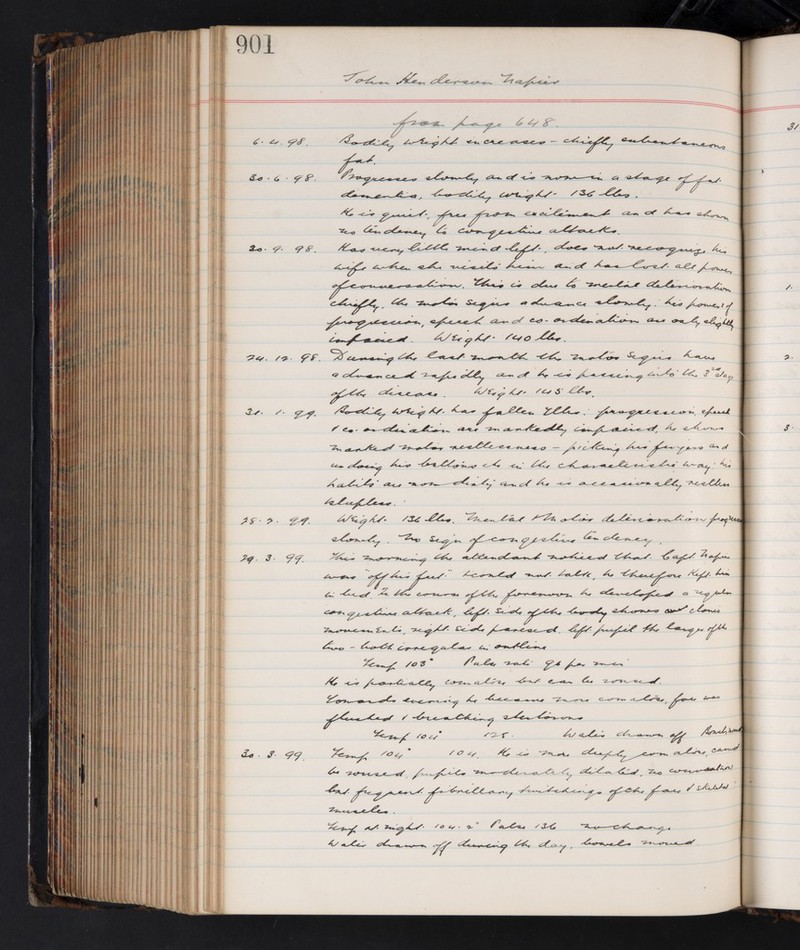 901
John Henderson Napier
from page 648.
6. 4. 98. Bodily weight increases - chiefly subcutaneous
fat.
30. 6. 98. Progresses slowly and is now in a stage of fat
dementia, bodily weight 136 lbs.
He is quiet, free from excitement and has shown
no tendency to congestive attacks.
30. 9. 98. Has very little mind left, does not recognize his
wife when she visits him and has lost all power
of conversation. This is due to mental deterioration
chiefly, the motor signs advance slowly: his powers of
progression, speech and co-ordination are only slightly
impaired. Weight 140 lbs.
24. 12. 98. During the last month the motor signs have
advanced rapidly and he is passing into the 3rd stage
of the disease. Weight 145 lbs.
31. 1. 99. Bodily weight has fallen 7 lbs: progression, speech
& co-ordination are markedly impaired, he shows
marked motor restlessness - picking his fingers and
undoing his buttons etc in the characteristic way. his
habits are now dirty and he is occasionally restless
& sleepless.
28. 2. 99. Weight 136 lbs. Mental & Motor deterioration progress
slowly. No sign of congestive tendency.
29. 3. 99. This morning the attendant noticed that Capt Napier
was "off his feet" & could not talk, he therefore kept him
in bed. In the course of the forenoon he developed a regular
congestive attack, left side of the body shows clonic
movements, right side paresed, left pupil the larger of the
two - both irregular in outline
Temp 103° Pulse rate 96 per min
He is partially comatose but can be roused.
Towards evening he became more comatose, face was
flushed & breathing stertorous
Temp 104° 125. Water drawn off Bowels moved
30. 3. 99. Temp 104° 104. He is more deeply comatose, cannot
be roused, pupils moderately dilated, no
but frequent fibrillary twitchings of the face & skeletal
muscles.
Temp at night 104.2° Pulse 136 no change
Water drawn off during the day, bowels moved
31
1.
2.
3